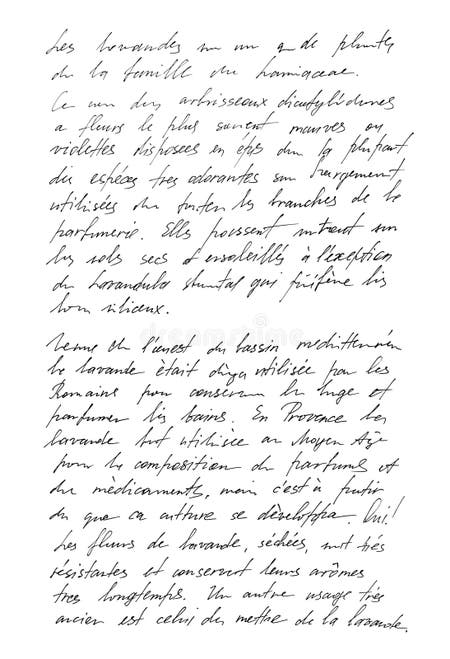 Les lavandes un de plantes
de la famille des Lamiaceae.
Ce des arbrisseaux dicotylédones
a fleurs le plus souvent mauves ou
violettes disposées en épis la plupart
des espèces très odorantes largement
utilisées les branches de la
parfumerie. Elles poussent surtout sur
les sols secs et ensoleillés à l'exception
du Lavandula qui préfère les
siliceux.
de l'ouest du bassin
la lavande était déja utilisée par les
Romains pour conserver le linge et
parfumer les bains. En Provence la
lavande fut utilisée au Moyen Age
pour la composition de parfums et
de mèdicaments, mais c'est à
du que sa culture se développa. Oui!
Les fleurs de lavande, séchées, sont très
résistantes et conservent leurs arômes
tres longtemps. Un autre usage très
ancien est celui de mettre de la lavande.
dreamstime